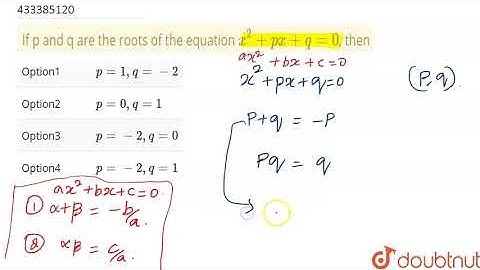 433385120
If p and q are the roots of the equation x² + px + q = 0, then
Option1 p = 1, q = −2
Option2 p = 0, q = 1
Option3 p = −2, q = 0
Option4 p = −2, q = 1
ax² + bx + c = 0
x² + px + q = 0
(P, q)
P + q = −P
Pq = q
ax² + bx + c = 0
① α + β = −b/a.
② αβ = c/a.
doubtnut